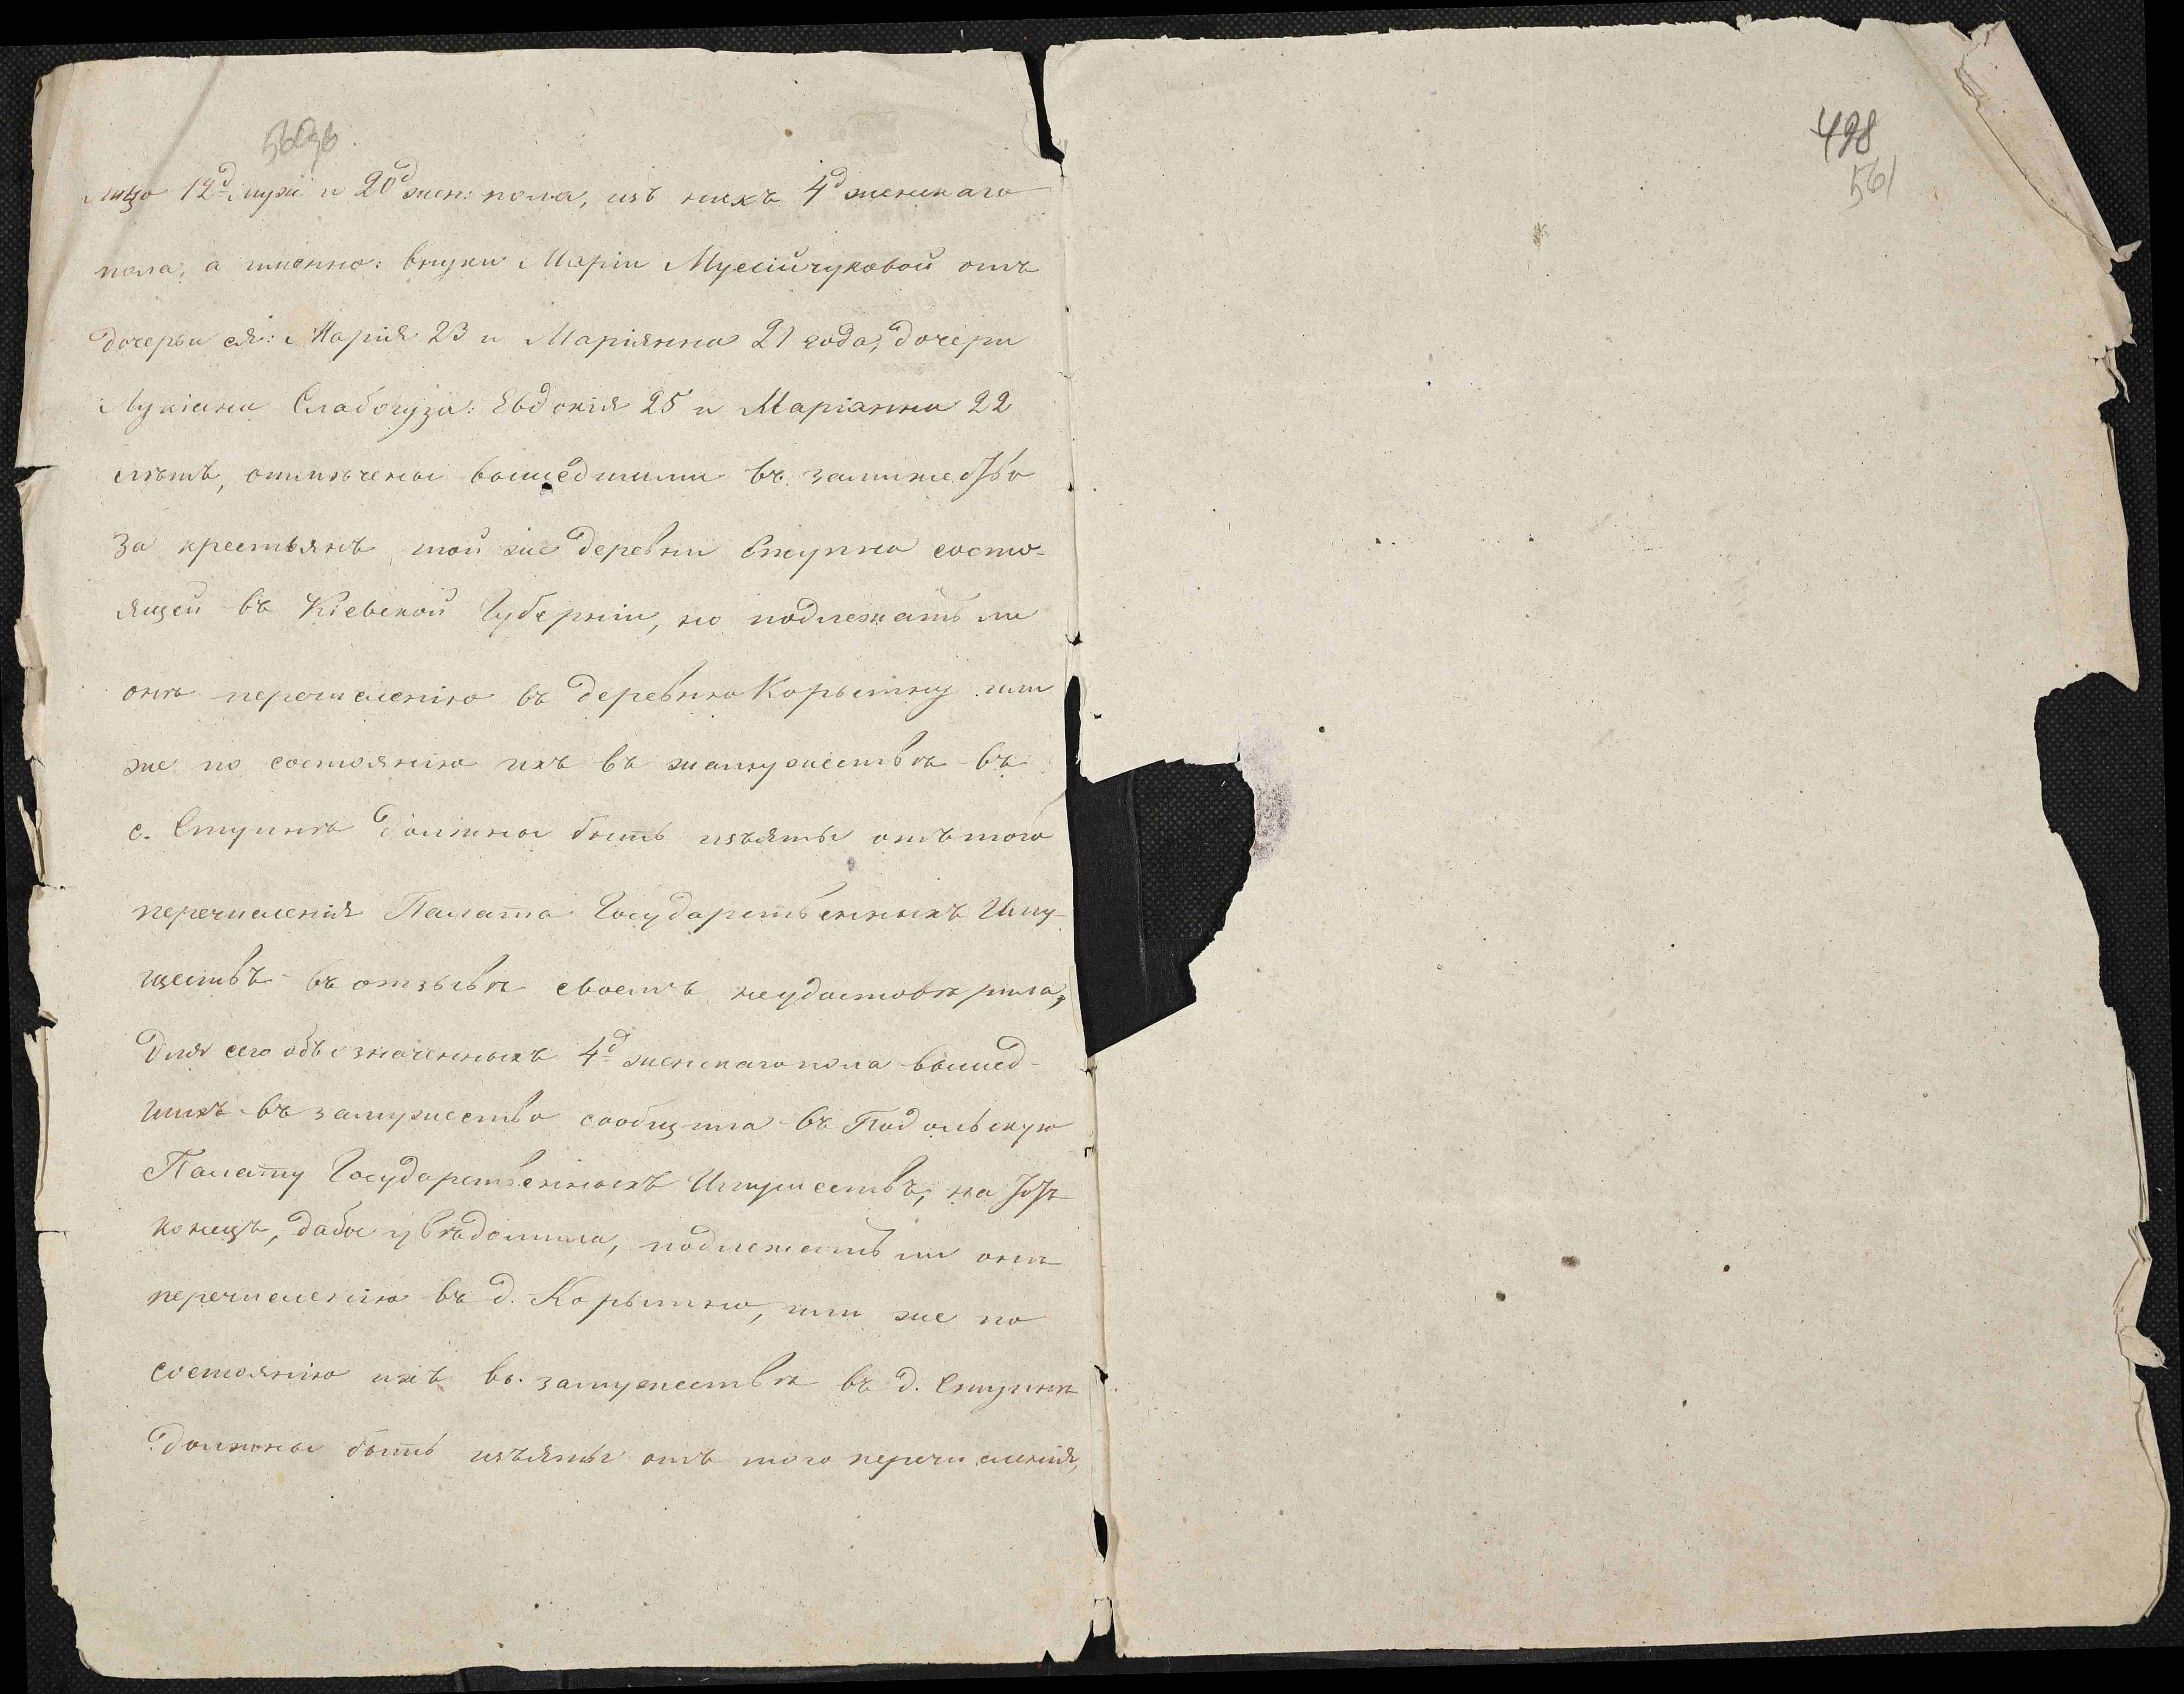 498
561
лицо 12д муж. и 20д жен: пола, изъ нихъ 4д женскаго
пола, а именно: внуки Маріи Мусійчуковой отъ
дочерьи ея: Марія 23 и Маріянна 21 года, дочери
Лукіана Слабогуза: Евдокія 25 и Маріанна 22
лѣтъ, отмѣчены вышедшими въ замужество
За крестьянъ той же деревни Ступки состо-
ящей въ Кіевской Губерніи, но подлежатъ ли
онѣ перечисленію въ деревню Корытну или
же по состоянію ихъ въ замужествѣ въ
с. Ступкѣ должны быть изъяты отъ того
перечисленія Палата Государственныхъ Иму-
ществъ въ отзывѣ своемъ неудостовѣрила,
Для сего объ означенныхъ 4д женскаго пола вышед-
шихъ въ замужество сообщила въ Подольскую
Палату Государственныхъ Имуществъ, на тотъ
конецъ, дабы увѣдомила, подлежатъ ли онѣ
перечисленію въ д. Корытню, или же по
состоянію ихъ въ замужествѣ въ д. Ступкѣ
должны быть изъяты отъ того перечисленія,